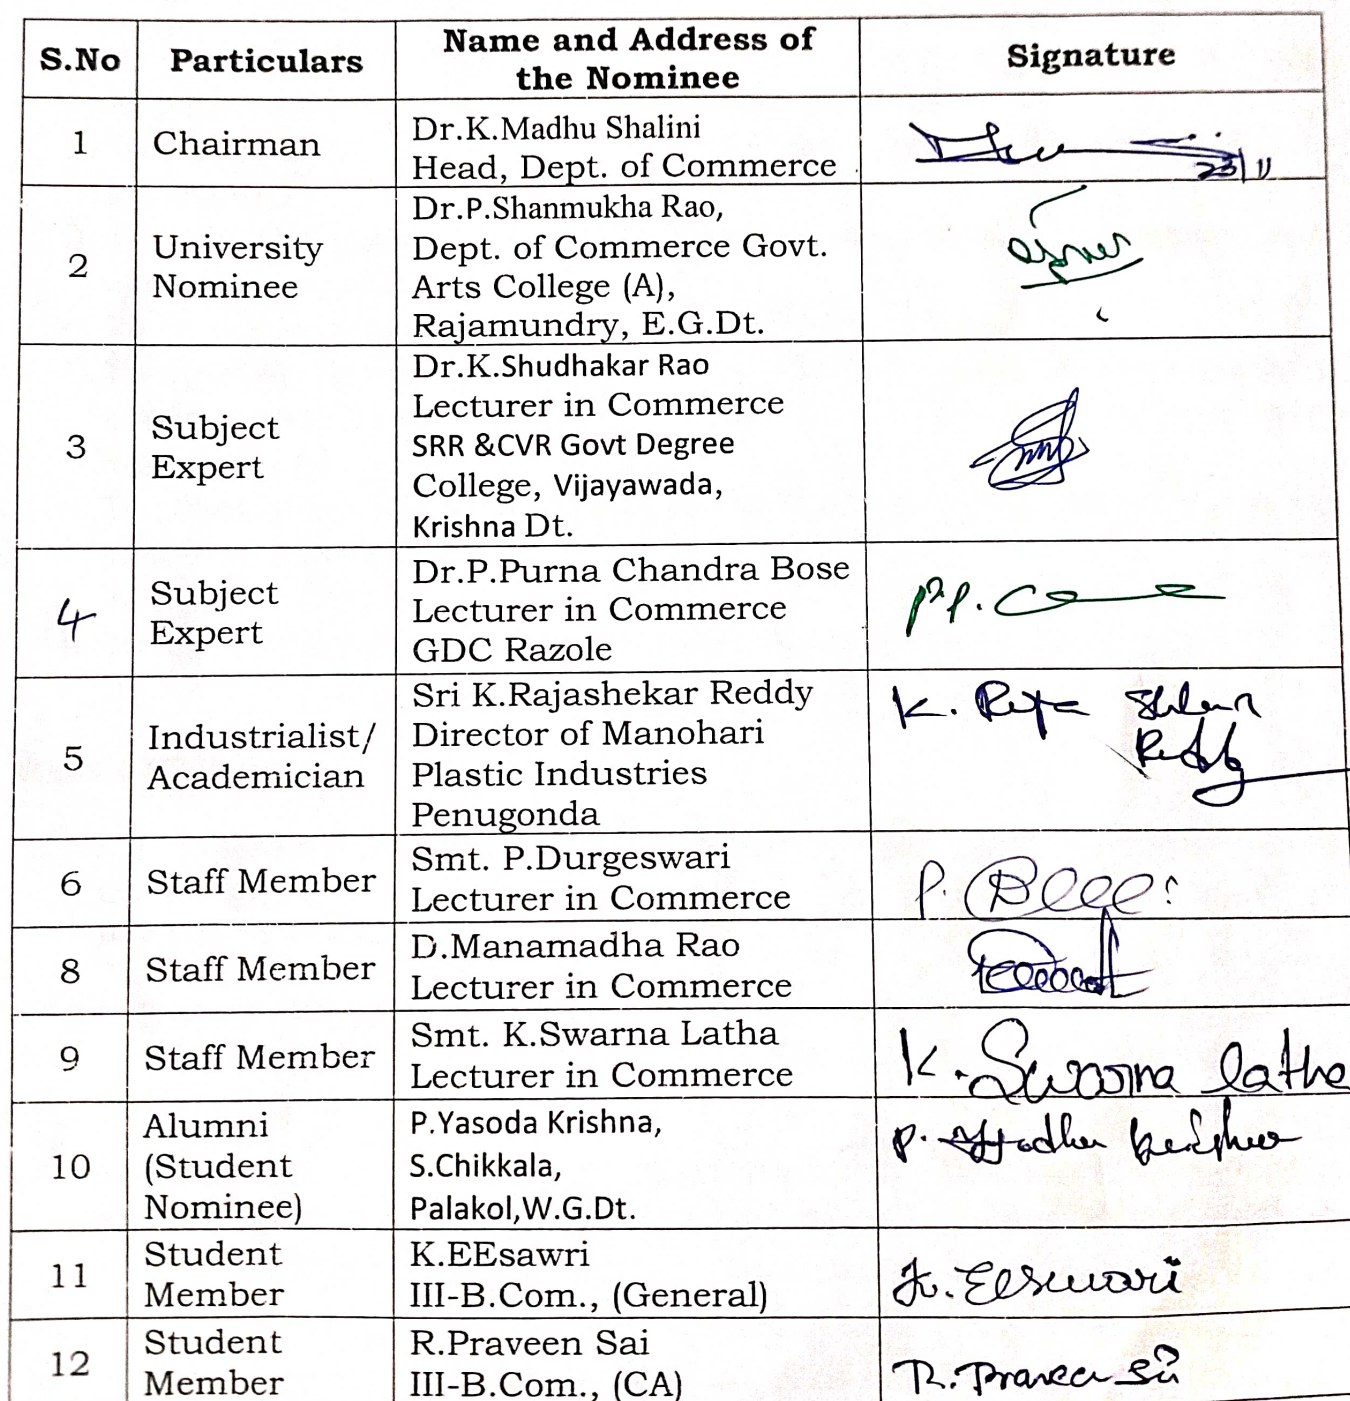 S.No Particulars Name and Address of the Nominee Signature
1 Chairman Dr.K.Madhu Shalini
Head, Dept. of Commerce
23/11
2 University Nominee Dr.P.Shanmukha Rao,
Dept. of Commerce Govt.
Arts College (A),
Rajamundry, E.G.Dt.
3 Subject Expert Dr.K.Shudhakar Rao
Lecturer in Commerce
SRR &CVR Govt Degree
College, Vijayawada,
Krishna Dt.
4 Subject Expert Dr.P.Purna Chandra Bose
Lecturer in Commerce
GDC Razole
P.P.
5 Industrialist/ Academician Sri K.Rajashekar Reddy
Director of Manohari
Plastic Industries
Penugonda
K. Reddy
6 Staff Member Smt. P.Durgeswari
Lecturer in Commerce
P.
8 Staff Member D.Manamadha Rao
Lecturer in Commerce
9 Staff Member Smt. K.Swarna Latha
Lecturer in Commerce
K. Swarna latha
10 Alumni (Student Nominee) P.Yasoda Krishna,
S.Chikkala,
Palakol,W.G.Dt.
P.
11 Student Member K.EEsawri
III-B.Com., (General)
K. Eeswari
12 Student Member R.Praveen Sai
III-B.Com., (CA)
R. Praveen Sai